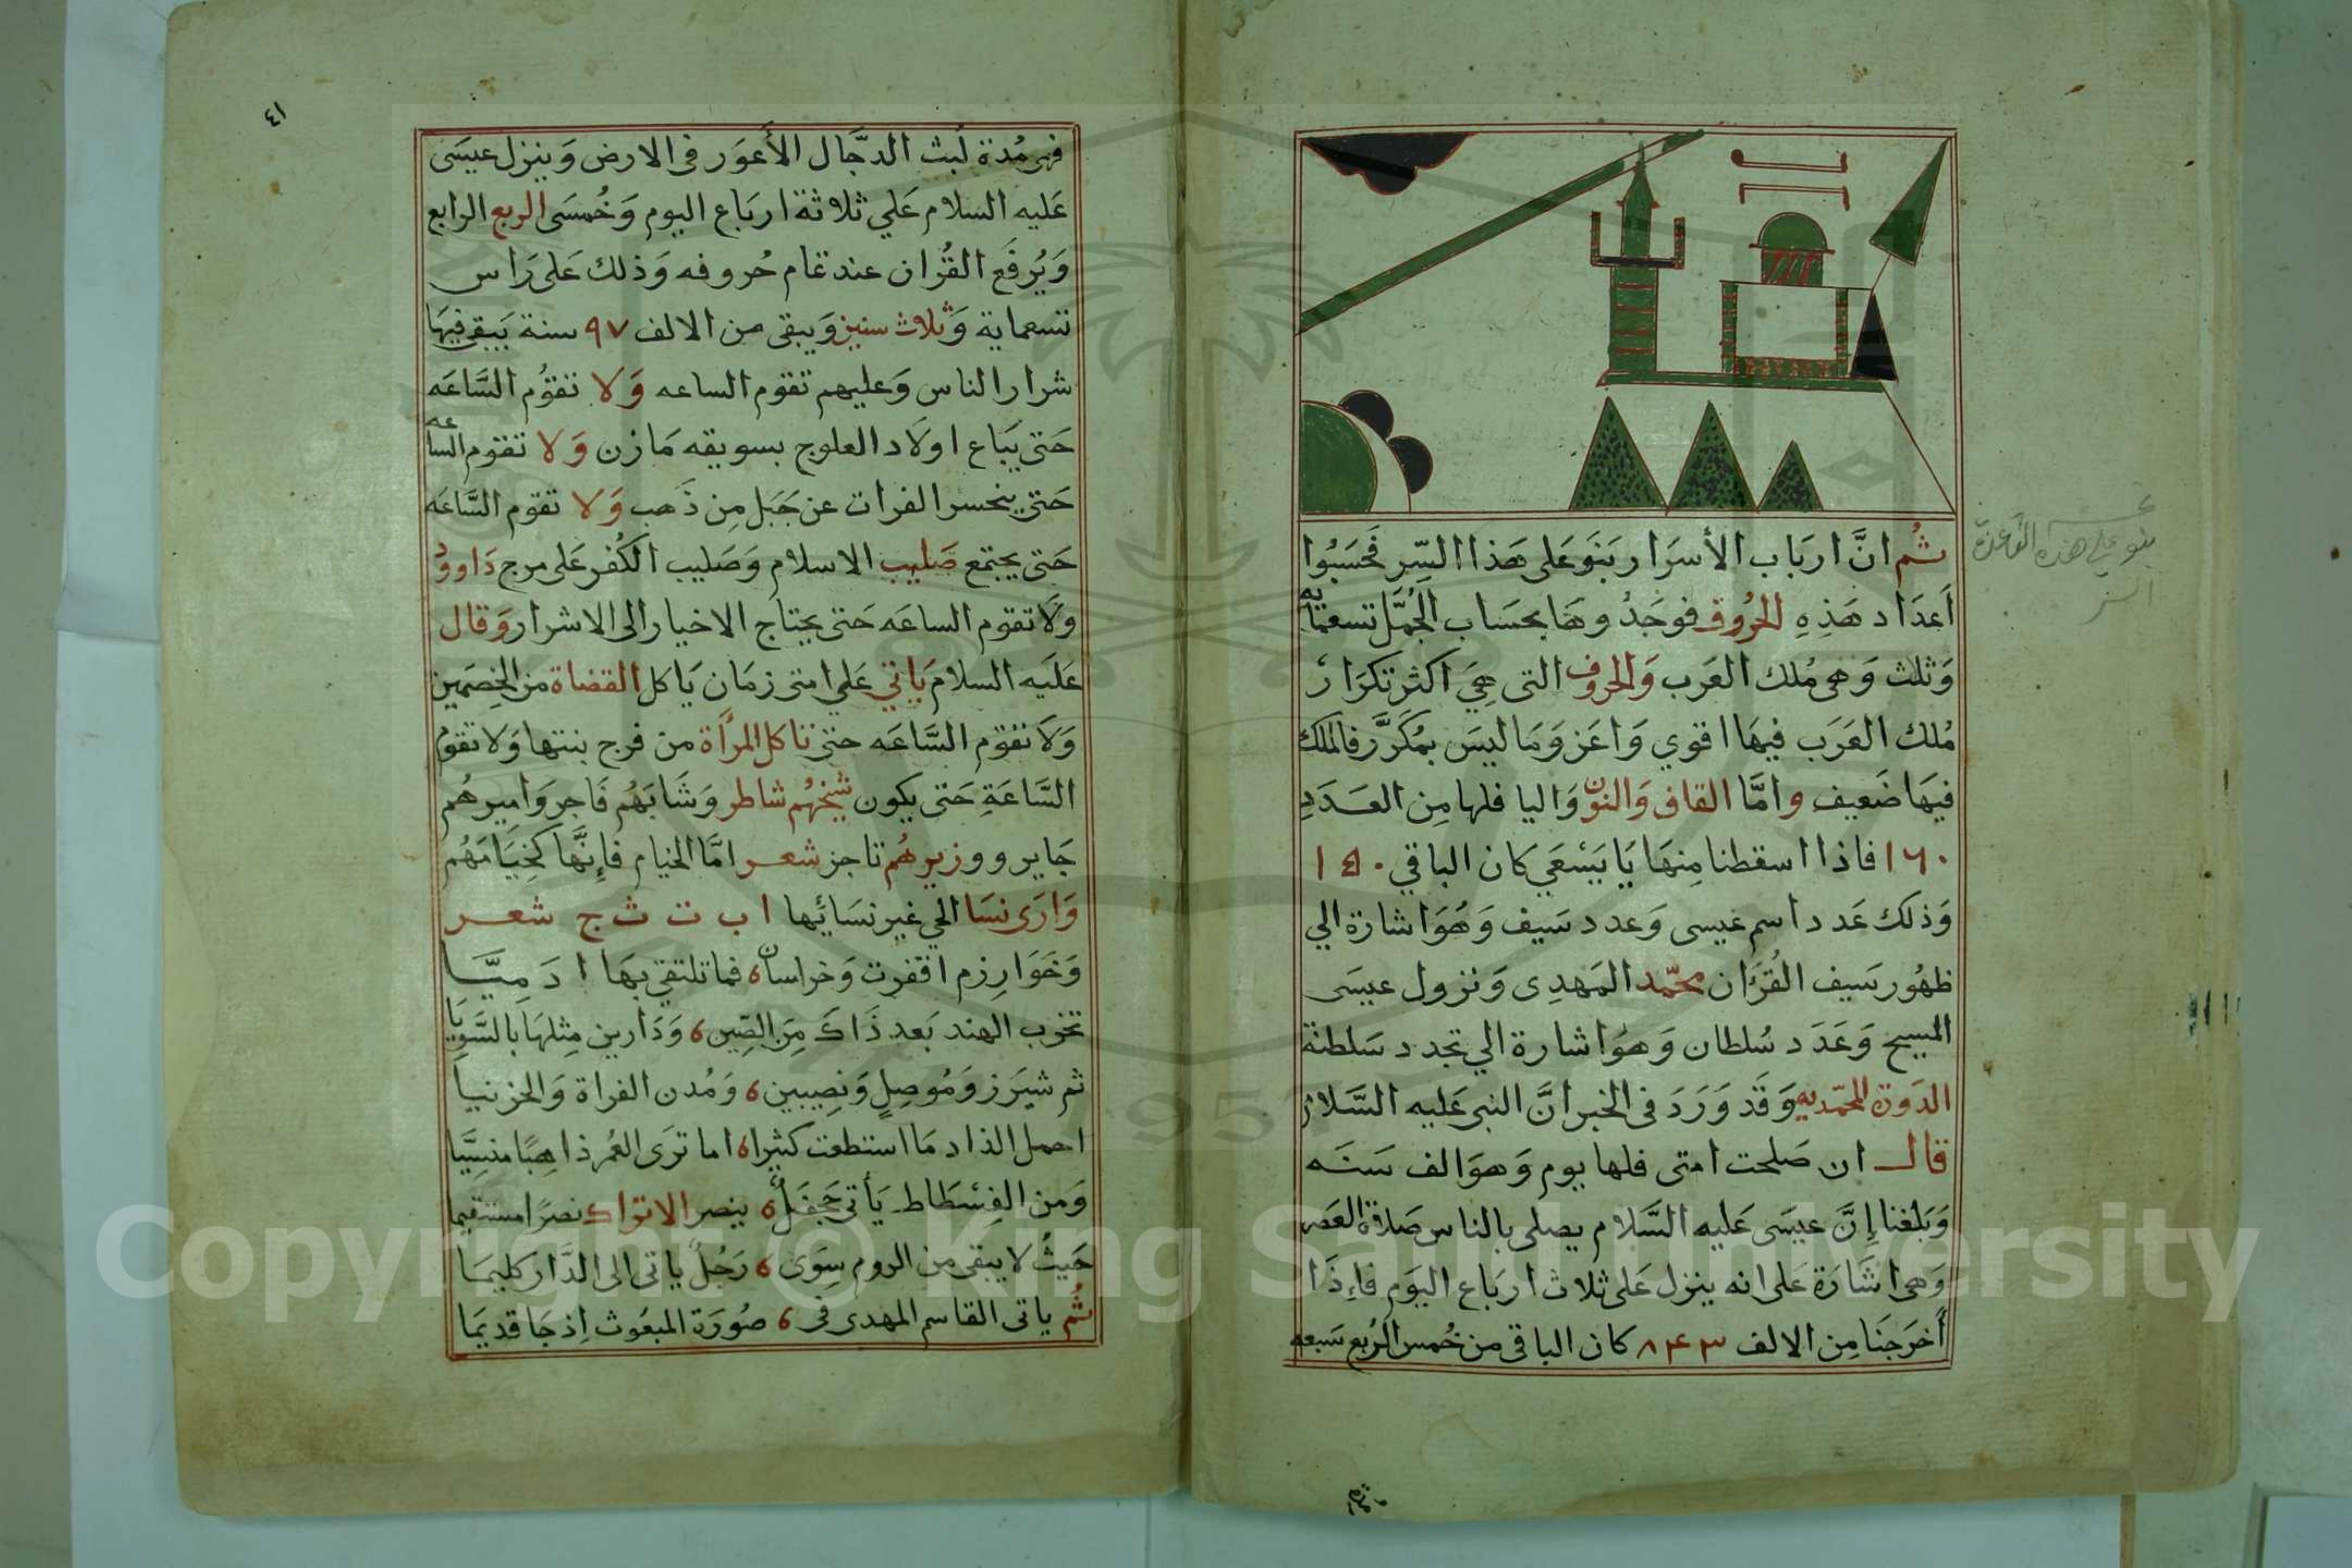 ثُم انَّ ارباب الأسرار بَنَو عَلى هَذا السِّر فحَسَبُوا
اَعدَاد هَذِهِ الحُروف فوجَدُوهَا بحسَاب الجُمَّل تسعمايه
وَثلث وَهى مُلك العَرب وَالحروف التى هِيَ اكثر تكرَارً
مُلك العَرَب فيهَا اقوي وَاعَز وَمَا ليسَ بمُكَرَّر فالملك
فيهَا ضَعيف وامَّا القاف وَالنون وَاليا فلها مِن العَدَدِ
١٦٠ فاذا اسقطنا مِنهَا يَا يَسْعَي كان الباقي ١٤٠
وَذلك عَدد اسم عيسى وَعدد سَيف وَهُوَ اشارة الي
ظهُور سَيف القُرآن محمّد المَهدِى وَنزول عيسَى
المَسيح وَعَدَد سُلطان وَهوَ اشارة الي تجدد سَلطنة
الدَوة المحمّديه وَقَد وَرَدَ فى الخبر انَّ النبى عَليه السَّلام
قال ان صَلحت امتى فلها يوم وَهوَ الف سَنَه
وَبَلغنا إنَّ عيسَى عَليه السَّلام يصلى بالناس صَلاة العَصر
وَهى اشَارَة عَلى انه ينزل عَلى ثلاث ارَباع اليَوم فاِذَا
أخرَجنَا مِن الالف ٨٤٣ كان الباقى من خُمس الرُبع سَبعه
مُدة
بنو على هذه القاعدة
السر
٤١
فهى مُدة لَبث الدجَّال الأعوَر فى الارض وَينزل عيسَى
عَليه السلام عَلي ثلاثة ارباع اليوم وَخُمسَى الربع الرابع
وَيُرفَع القُرْان عند تمام حُروفه وَذلك عَلى رَاس
تسعماية وَثلاث سنين وَيبقى من الالف ٩٧ سنة يَبقى فيهَا
شرار الناس وَعليهم تقوم الساعه وَلا تقوُم السَّاعَه
حَتى يَباع اولَاد العلوج بسويقه مَازن وَلا تقوم الساعه
حَتى ينحسر الفرات عن جَبَل مِن ذَهب وَلا تقوم السَّاعَه
حَتى يجتمع صَليب الاسلام وَصَليب الكُفر على مرج دَاوود
وَلَا تقوم الساعَه حَتى يحتاج الاخيار الى الاشرار وَقال
عَلَيه السلام يَاتي عَلى امتى زمَان يَاكل القضاة من الخصمين
وَلَا تقوم السَّاعَه حتى تاكل المرأة من فرج بنتها وَلا تقوم
السَّاعَةِ حَتى يكون شيخهُم شاطر وَشَابَهُم فَاجر وَاميرهُم
جَاير ووزيرهُم تاجر شعر امَّا الخيام فإنَّها كَخِيَامَهُم
وَارَى نسَا الحي غير نسَائِها ا ب ت ث ج شعر
وَخوَارِزم اقفرت وَخراسان ٥ فما تلتقي بهَا ادَمِيَّا
تخرب الهند بَعد ذَاكَ مِنَ الصِّين ٥ وَدَارين مِثلهَا بالسَّوِيَا
ثم شيَرز وَمُوصِل وَنصِيبين ٥ وَمُدن الفراة وَالخزنيا
احمل الذاد مَا استطعت كثيرا ٥ اما ترَى العُمر ذاهِبًا منسِيَّا
وَمن الفِسْطَاط يَأتى جَحفَلٌ ٥ ينصر الاتراك نصرًا مستقيما
حَيثُ لا يبقى من الروم سِوَى ٥ رَجُلٌ ياتى الى الدَّار كليمَا
ثُم ياتى القاسم المهدى فى ٥ صُورَة المبعُوث اِذ جَا قديمَا
Copyright © King Saud University